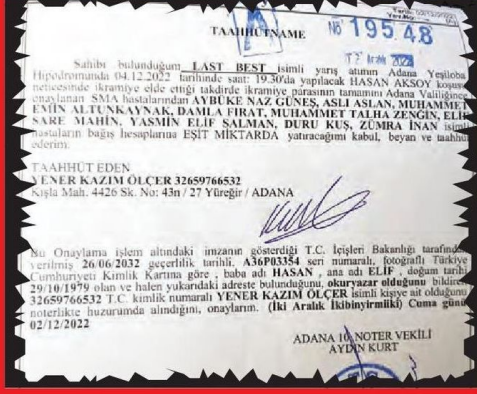 TAAHHÜTNAME
№ 19548
02 Aralık 2022
Sahibi bulunduğum LAST BEST isimli yarış atının Adana Yeşiloba
Hipodromunda 04.12.2022 tarihinde saat: 19.30'da yapılacak HASAN AKSOY koşusu
neticesinde ikramiye elde ettiği takdirde ikramiye parasının tamamını Adana Valiliğince
onaylanan SMA hastalarından AYBÜKE NAZ GÜNEŞ, ASLI ASLAN, MUHAMMET
EMİN ALTUNKAYNAK, DAMLA FIRAT, MUHAMMET TALHA ZENGİN, ELİF
SARE MAHİN, YASMİN ELİF SALMAN, DURU KUŞ, ZÜMRA İNAN isimli
hastaların bağış hesaplarına EŞİT MİKTARDA yatıracağımı kabul, beyan ve taahhüt
ederim.
TAAHHÜT EDEN
YENER KAZIM ÖLÇER 32659766532
Kışla Mah. 4426 Sk. No: 43n / 27 Yüreğir / ADANA
Bu Onaylama işlem altındaki imzanın gösterdiği T.C. İçişleri Bakanlığı tarafından
verilmiş 26/06/2032 geçerlilik tarihli, A36P03354 seri numaralı, fotoğraflı Türkiye
Cumhuriyeti Kimlik Kartına göre , baba adı HASAN , ana adı ELİF , doğum tarihi
29/10/1979 olan ve halen yukarıdaki adreste bulunduğunu, okuryazar olduğunu bildiren
32659766532 T.C. kimlik numaralı YENER KAZIM ÖLÇER isimli kişiye ait olduğunu
noterlikte huzurumda alındığını, onaylarım. (İki Aralık İkibinyirmiiki) Cuma günü
02/12/2022
ADANA 10. NOTER VEKİLİ
AYDIN KURT